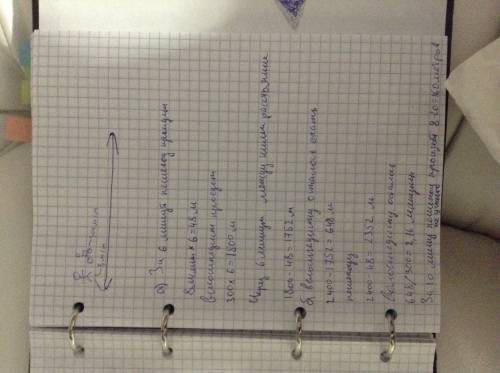 а) За 6 минут пешеход пройдет
8м/мин × 6 = 48 м
велосипедист проедет
300 × 6 = 1800 м
Через 6 минут между ними расстояние
1800 - 48 = 1752 м
б) велосипедисту осталось ехать
2400 - 1752 = 648 м
пешеходу
2400 - 48 = 2352 м
велосипедисту осталось
648/300 = 2,16 минуты
За 10 минут пешеход пройдет 8·10 = 80 метров